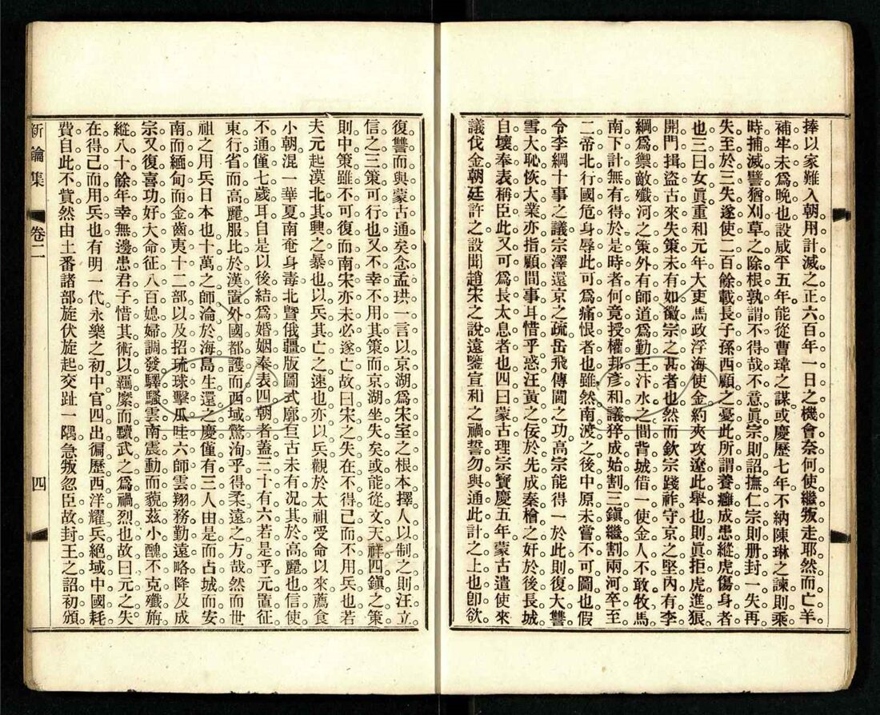 捧以家難入朝用計滅之正六百年一日之機會奈何使繼叛走耶然而亡羊。
補牢未為晚也設咸平五年能從曹瑋之謀或慶歷七年不納陳琳之諫則乘
時捕滅譬猶刈草之除根孰謂不得哉不意真宗則詔撫仁宗則册封一失再
失至於三失遂使二百餘載長子孫西顧之憂此所謂養癰成患縱虎傷身者。
也三曰女眞重和元年大吏馬政浮海使金約夾攻遼此舉也則眞拒虎進狼。
開門揖盜古來失策未有如徽宗之甚者也然而欽宗踐祚守京之堅內有李
綱為禦敵殲河之策外有師道為勤王汴水之間背城借一使金人不敢牧馬
南下計無有得於是時者何竟授權邦彥和議猝成始割三鎮繼割兩河卒至
二帝北行國危身辱此可為痛恨者也雖然南渡之後中原未嘗不可圖也假
令李綱十事之議宗澤還京之疏岳飛傳闕之功高宗能得一於此則復大讐
雪大恥恢大業亦指顧間事耳惜乎惑汪黃之佞於先成秦檜之奸於後長城
自壞奉表稱臣此又可為長太息者也四曰蒙古理宗寶慶五年蒙古遣使來
議伐金朝廷許之設聞趙宋之說遠鑒宣和之禍誓勿與通此計之上也卽欲
復讐而與蒙古通矣念孟珙一言以京湖為宋室之根本擇人以制之則汪立
信之三策可行也又不幸不用其策而京湖坐失矣或能從文天祥四鎮之策
則中策雖不可復而南宋亦未必遂亡故曰宋之失在不得已而不用兵也若
夫元起漠北其興之暴也以兵其亡之速也亦以兵觀於太祖受命以來薦食
小朝混一華夏南奄身毒北曁俄疆版圖式廓亘古未有況其於高麗也信使
不通僅七歲耳自是以後結為婚姻奉表四朝者蓋三十有六若是乎元置征
東行省而高麗服比於漢置外國都護而西域驚洵乎得柔遠之方哉然而世
祖之用兵日本也十萬之師淪於海島生還之慶僅有三人由是而占城而安
南而緬甸而金齒夷十二部以及招琉球擊瓜哇六師雲翔務勤遠略降及成
宗又復喜功好大命征八百媳婦調發驛騷雲南震動而藐茲小醜不克殲旃
縱八十餘年幸無邊患君子惜其術以羈縻而黷武之為禍烈也故曰元之失
在得已而用兵也有明一代永樂之初中官四出徧歷西洋耀兵絕域中國耗
費自此不貲然由土番諸部旋伏旋起交趾一隅急叛忽臣故封王之詔初頒
新論集 卷二 四